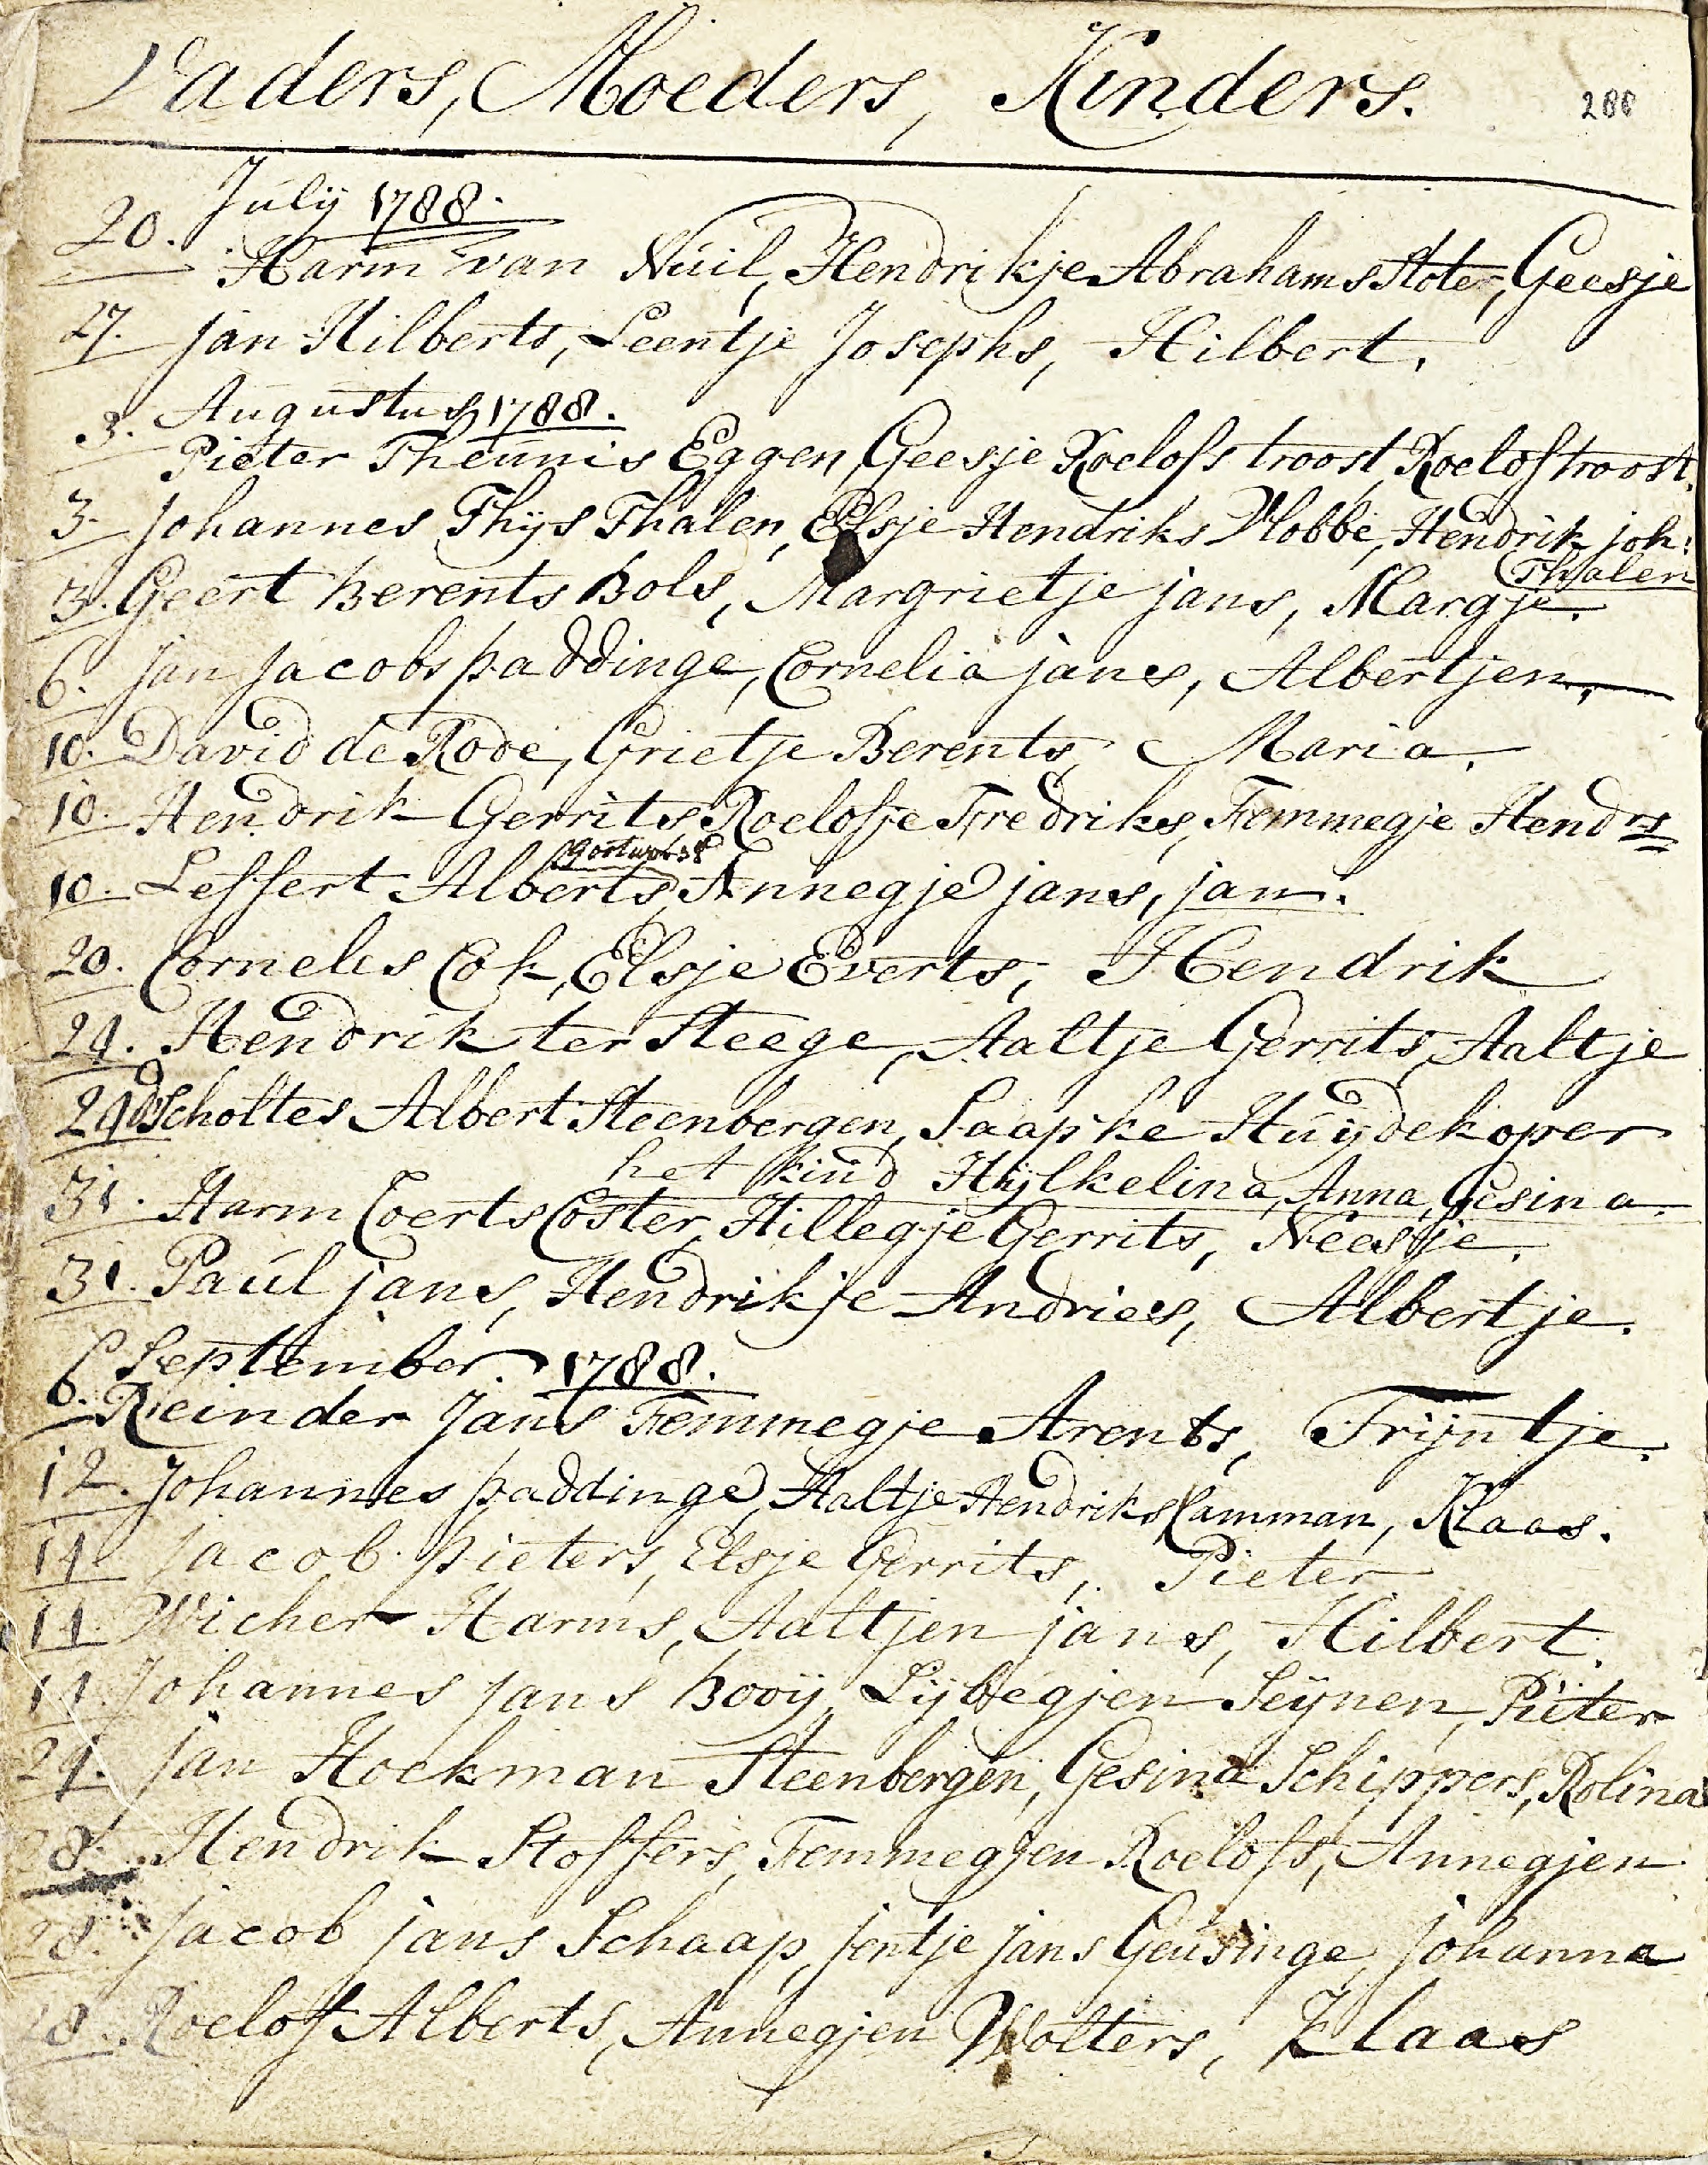 Vaders, Moeders, Kinders. 288
July 1788.
20. Harm van Nuil, Hendrikje Abrahams Stoter, Geesje
27. Jan Hilberts, Leentje Josephs, Hilbert.
Augustus 1788.
3. Pieter Theunis Eggen, Geesje Roelofs troost, Roelof troost.
3. Johannes Thijs Thalen, Elsje Hendriks Slobbe, Hendrik joh:
Thalen
3. Geert Berents Bols, Margrietje jans, Margje.
6. Jan Jacobs paddinge, Cornelia jans, Albertjen,
10. David de Rode, Grietje Berents, Maria.
10. Hendrik Gerrits, Roelofje Fredriks, Femmegje Hendrs
10. Leffert Alberts, Annegje jans, jan.
20. Cornelis Cok, Elsje Everts, Hendrik
24. Hendrik ter Steege, Aaltje Gerrits, Aaltje
24 Scholtes Albert Steenbergen, Saapke Huijdekoper
het kind Hijlkelina, Anna, Gesina.
31. Harm Coerts Coster, Hillegje Gerrits, Neesje.
31. Paul jans, Hendrikje Andries, Albertje.
September 1788.
6. Reinder Jans Femmegje Arents, Trijntje.
12. Johannes paddinge, Aaltje Hendriks Camman, Klaas.
14 Jacob pieters, Elsje Gerrits, Pieter
14. Wicher Harms, Aaltjen jans, Hilbert.
14. Johannes Jans Booij, Lijbegjen Seijnen, Pieter
24. Jan Hoekman Steenbergen, Gesina Schippers, Rolina
28. Hendrik Stoffers, Femmegjen Roelofs, Annegjen
28. Jacob jans Schaap, jentje jans Geusinge, Johanna
28. Roelof Alberts, Annegjen Wolters, Klaas